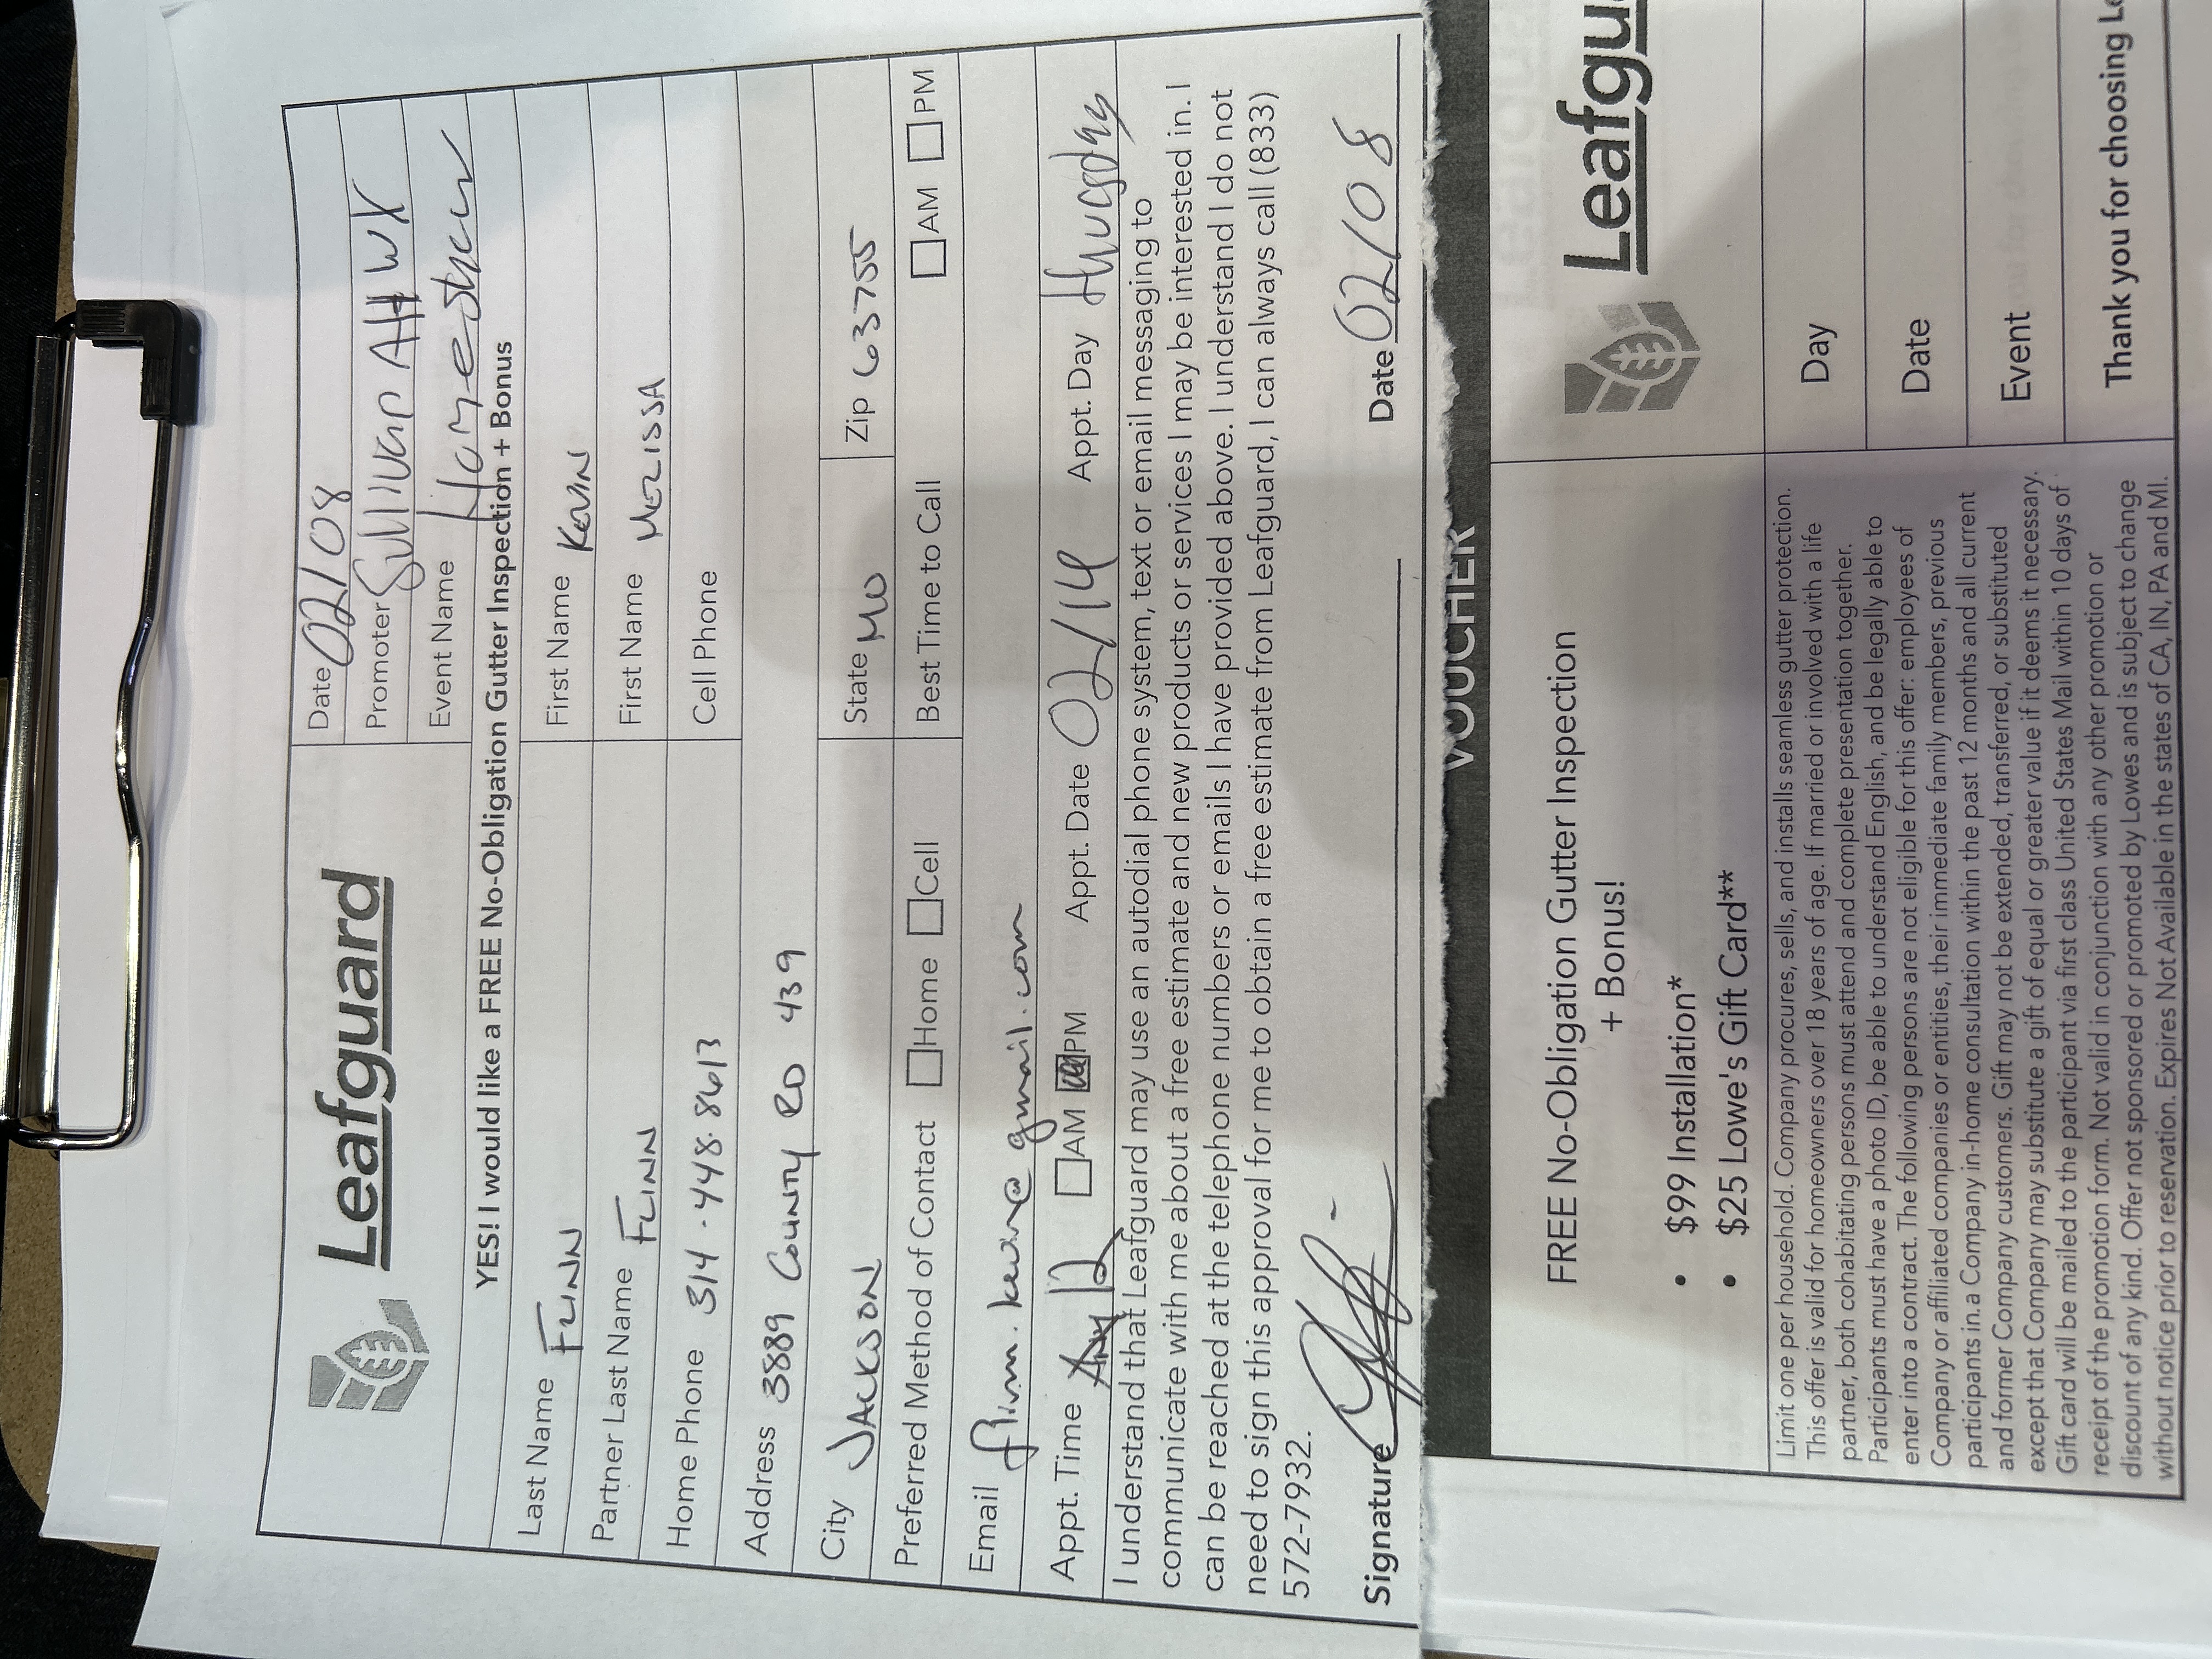 Leafguard
Date 02/08
Promoter Sullivan AHWX
Event Name Homeshow
YES! I would like a FREE No-Obligation Gutter Inspection + Bonus
Last Name FLINN First Name KEVIN
Partner Last Name FLINN First Name MELISSA
Home Phone 314-448-8613 Cell Phone
Address 3889 COUNTY RD 439
City JACKSON State MO Zip 63755
Preferred Method of Contact Home Cell Best Time to Call AM PM
Email flinn.kevin@gmail.com
Appt. Time Any 12 AM PM Appt. Date 02/14 Appt. Day thursday
I understand that Leafguard may use an autodial phone system, text or email messaging to
communicate with me about a free estimate and new products or services I may be interested in. I
can be reached at the telephone numbers or emails I have provided above. I understand I do not
need to sign this approval for me to obtain a free estimate from Leafguard, I can always call (833)
572-7932.
Signature Date 02/08
VOUCHER
FREE No-Obligation Gutter Inspection
+ Bonus!
• $99 Installation*
• $25 Lowe's Gift Card**
Limit one per household. Company procures, sells, and installs seamless gutter protection.
This offer is valid for homeowners over 18 years of age. If married or involved with a life
partner, both cohabitating persons must attend and complete presentation together.
Participants must have a photo ID, be able to understand English, and be legally able to
enter into a contract. The following persons are not eligible for this offer: employees of
Company or affiliated companies or entities, their immediate family members, previous
participants in a Company in-home consultation within the past 12 months and all current
and former Company customers. Gift may not be extended, transferred, or substituted
except that Company may substitute a gift of equal or greater value if it deems it necessary.
Gift card will be mailed to the participant via first class United States Mail within 10 days of
receipt of the promotion form. Not valid in conjunction with any other promotion or
discount of any kind. Offer not sponsored or promoted by Lowes and is subject to change
without notice prior to reservation. Expires Not Available in the states of CA, IN, PA and MI.
Leafgu
Day
Date
Event
Thank you for choosing Le